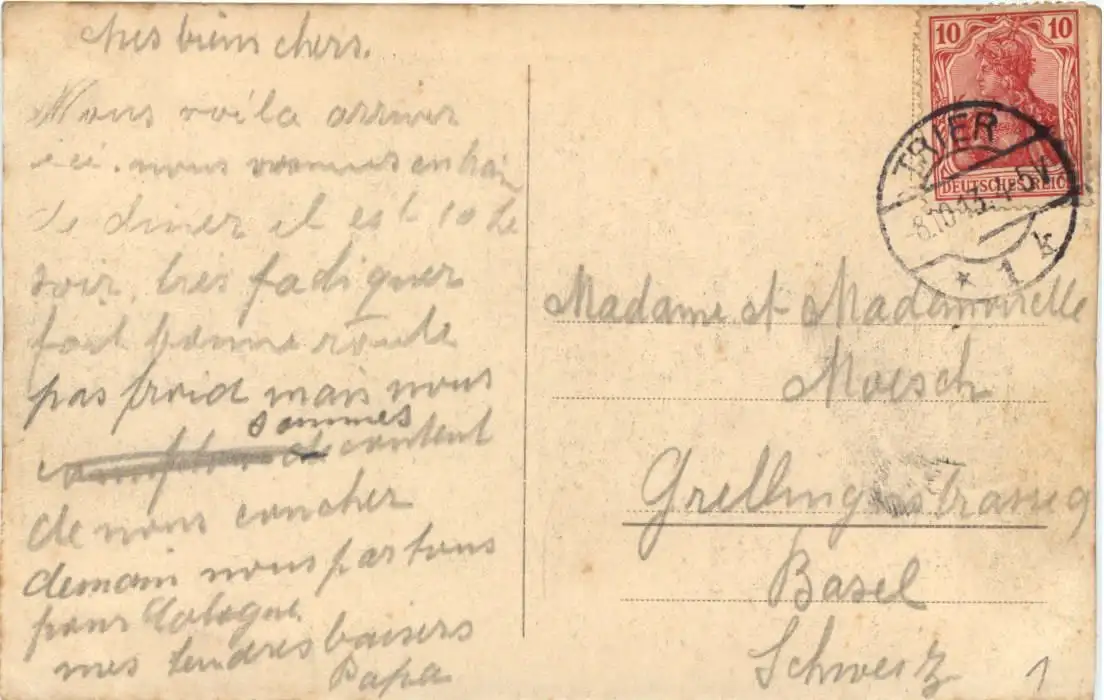 ches biens chers.
Nous voila arriver
ici. nous sommes en train
de diner il est 10 he
soir, tres fadiguer
fort bonne route
pas froid mais nous
sommes
content
de nous coucher
demain nous partons
pour Cologne.
mes tendres baisers
Papa
10 10
DEUTSCHES REICH
TRIER
8.10.13. 4-5V
* 1 k
Madame et Mademoiselle
Moesch
Grellingerstrasse 9
Basel
Schweiz
1